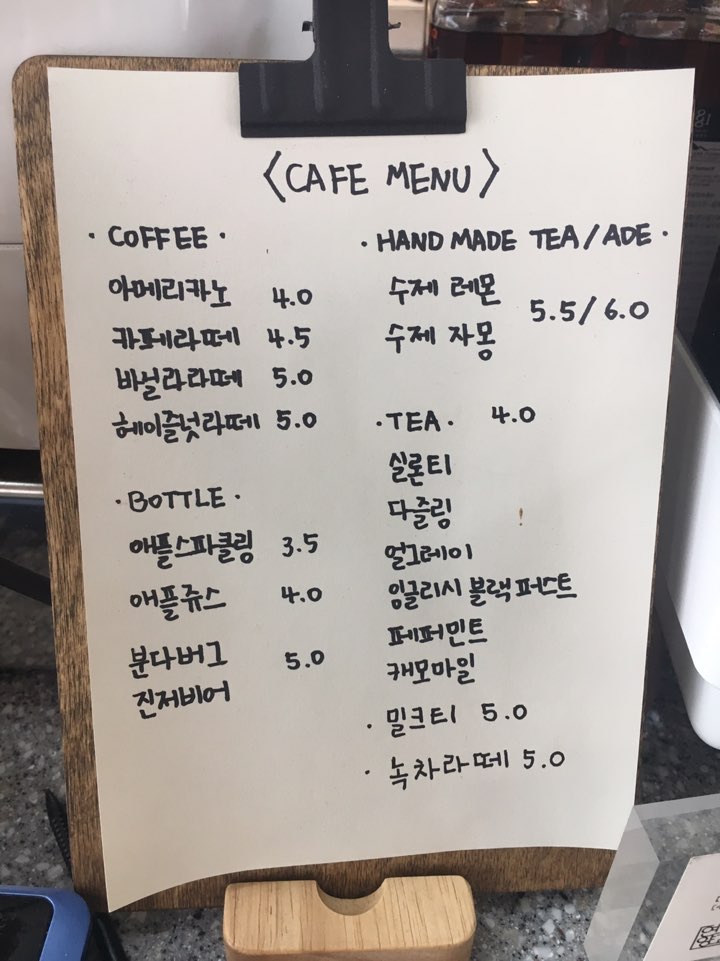 <CAFE MENU>
· COFFEE ·
아메리카노 4.0
카페라떼 4.5
바닐라라떼 5.0
헤이즐넛라떼 5.0
· BOTTLE ·
애플스파클링 3.5
애플쥬스 4.0
분다버그 5.0
진저비어
· HAND MADE TEA/ADE ·
수제 레몬
수제 자몽 5.5/6.0
· TEA · 4.0
실론티
다즐링
얼그레이
잉글리시 블랙퍼스트
페퍼민트
캐모마일
· 밀크티 5.0
· 녹차라떼 5.0